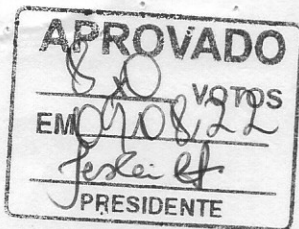 APROVADO
8,0 VOTOS
EM 09,08,22
PRESIDENTE